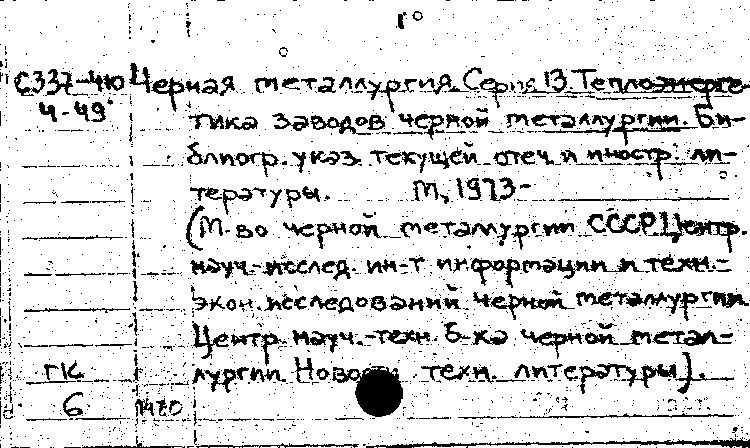 Г°
С337-4ю Черная металлургия. Серия 13. Теплоэнерге-
4-49 тика заводов черной металлургии. Би-
блиогр. указ. текущей отеч. и иностр. ли-
тературы. М., 1973-
(М-во черной металлургии СССР. Центр.
науч.-исслед. ин-т информации и техн.-
экон. исследований черной металлургии.
Центр. науч.-техн. б-ка черной метал-
ГК лургии. Новости техн. литературы).
6